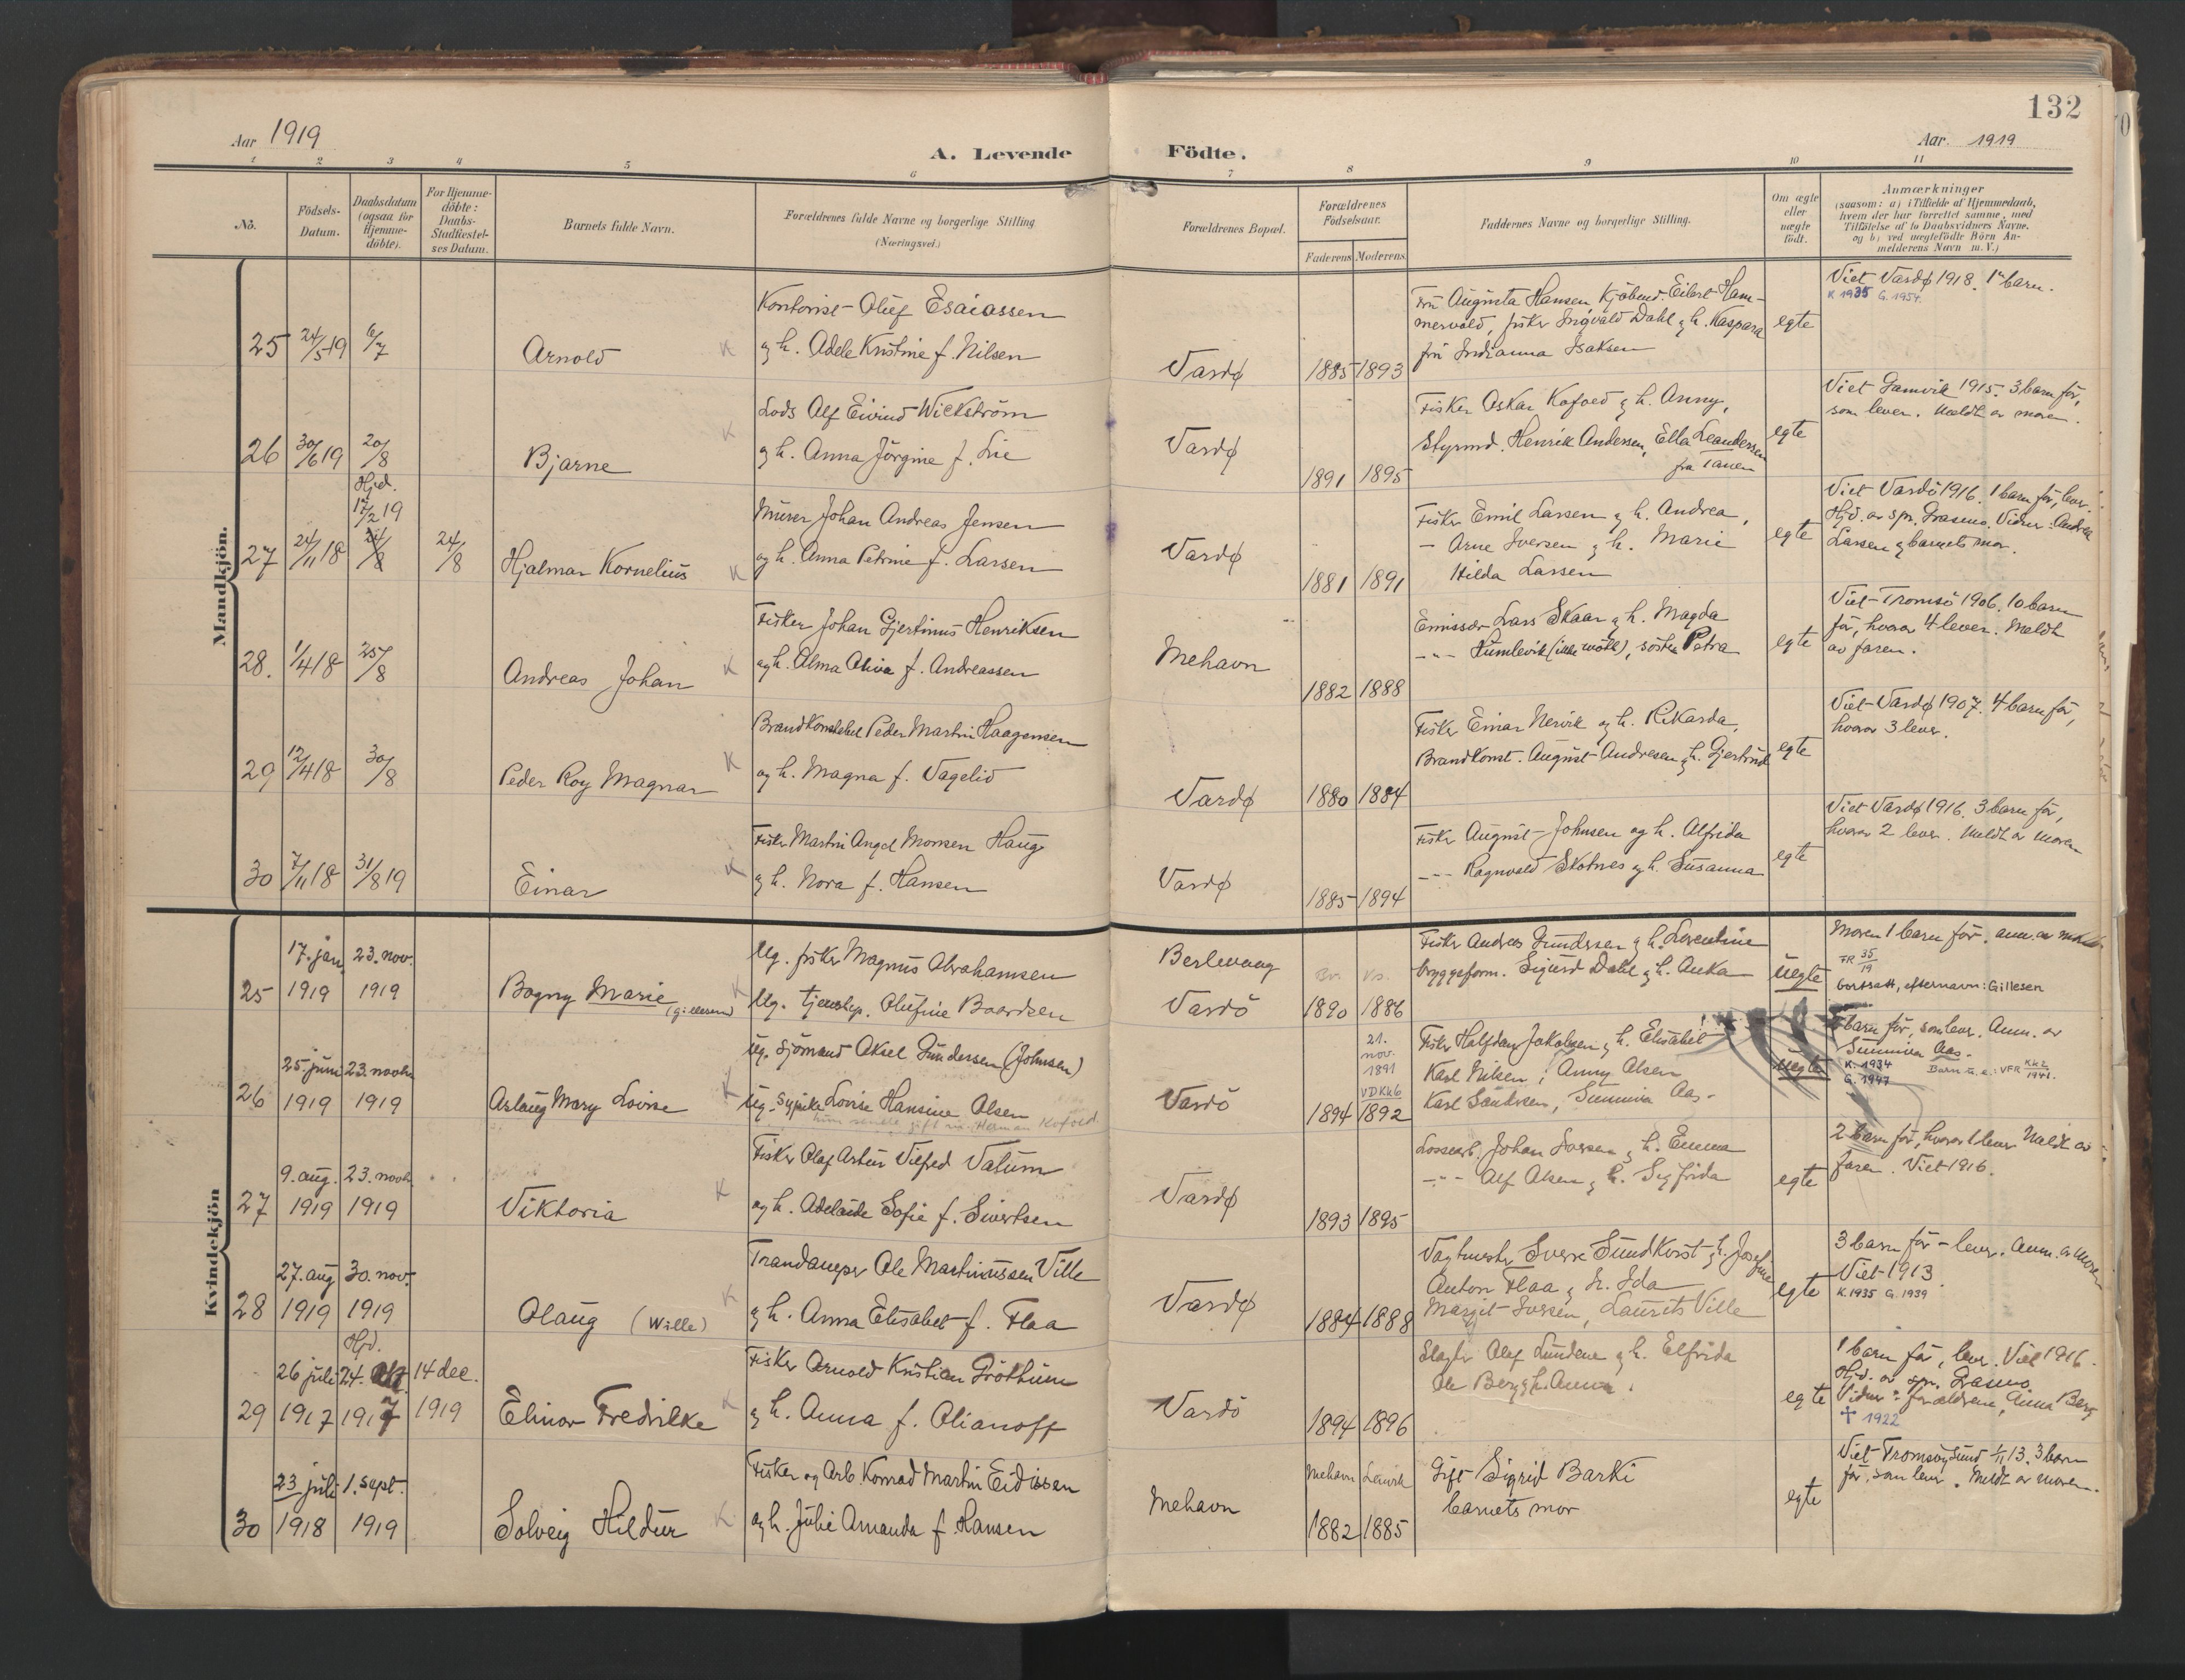 132
Aar 1919
A. Levende Födte.
Aar. 1919
1 2 3 4 5 6 7 8 9 10 11
No.
Födsels-Datum.
Daabsdatum (ogsaa for Hjemme-döbte).
For Hjemme-döbte: Daabs-Stadfæstel-ses Datum.
Barnets fulde Navn.
Forældrenes fulde Navne og borgerlige Stilling
(Næringsvei.)
Forældrenes Bopæl.
Forældrenes Födselsaar.
Faderens Moderens
Faddernes Navne og borgerlige Stilling.
Om ægte eller uægte födt.
Anmærkninger
(saasom: a) i Tilfælde af Hjemmedaab,
hvem der har forrettet samme, med
Tilföielse af to Daabsvidners Navne.
og b) ved uægtefödte Börn An-
melderens Navn m. V.)
Mandkjön.
25 24/5 19 6/7 Arnold
Kontorist Oluf Esaiassen
og h. Adele Kristine f. Nilsen
Vardø 1885 1893
Fru Augusta Hansen, Kjøbmd. Eilert Ham-
mervold, fisker Ingvald Dahl og h. Kaspara
fru Indianna Isaksen
egte
Viet Vardø 1918. 1ste barn.
K 1935 G. 1954.
26 30/6 19 20/8 Bjarne
Lods Alf Eivind Wickström
og h. Anna Jörgine f. Lie
Vardø 1891 1895
Fisker Oskar Kofoed og h. Anny,
Styrmd. Henrik Andersen, Ella Leandersen
fra Tanen
egte
Viet Gamvik 1915. 3 barn för,
som lever. Meldt av moren.
27 24/11 18 Hjd. 17/2 19 24/8 24/8 Hjalmar Kornelius
Murer Johan Andreas Jensen
og h. Anna Petrine f. Larsen
Vardø 1881 1891
Fisker Emil Larsen og h. Andrea,
– Arne Iversen og h. Marie
Hilda Larsen
egte
Viet Vardö 1916. 1 barn för, lever.
Hjd. av spr. Grasmo. Vidner: Andrea
Larsen og barnets mor.
28. 1/4 18 25/8 Andreas Johan
Fisker Johan Gjertinus Henriksen
og h. Alma Olivia f. Andreassen
Mehavn 1882 1888
Emissær Lars Skaar og h. Magda
–"– Humlevik (ikke mött), söster Petra
egte
Viet Tromsö 1906. 10 barn
för, hvorav 4 lever. Meldt
av faren.
29 12/4 18 30/8 Peder Roy Magnar
Brandkonstabel Peder Martin Haagensen
og h. Magna f. Vagelid
Vardø 1880 1884
Fisker Einar Nervik og h. Rikarda,
Brandkonst. August Andresen og h. Gjertrud
egte
Viet Vardø 1907. 4 barn för,
hvorav 3 lever.
30 7/11 18 31/8 19 Einar
Fisker Martin Angel Monsen Haug
og h. Nora f. Hansen
Vardø 1885 1894
Fisker August Johnsen og h. Alfrida
–"– Ragnvald Skotnes og h. Susanna
egte
Viet Vardø 1916. 3 barn för,
hvorav 2 lever. Meldt av moren
Kvindekjön
25 17. jan. 1919 23. nov. 1919 Bagny Marie (gillesen)
Ug. fisker Magnus Abrahamsen
Ug. tjenestep. Olufine Baardsen
Berlevaag
Vardö 1890 1886
Fisker Andreas Gundersen og h. Lorentine
bryggeform. Sigurd Dahl og h. Anka
uegte
Moren 1 barn för. anm. av
FR 35/19
bortsatt, efternavn: Gillesen
26 25. juni 1919 23. novbr. 1919 Aslaug Mary Lovise
Ug. Sjömand Aksel Gundersen (Johnsen)
Ug. Sypike Lovise Hansine Olsen
hun senere gift m. Herman Kofoed.
Vardö 1894 21. nov. 1891 VDKk6 1892
Fisker Halfdan Jakobsen og h. Elisabet
Karl Nilsen, Anny Olsen
Karl Sandsen, Sunniva Aas.
uegte
barn för, som lever. Anm. av
Sunniva Aas.
K. 1934
G. 1947
Barn u. e.: VFR Kk2 1941.
27 9. aug. 1919 23. novbr. 1919 Viktoria
Fisker Olaf Artur Vilfred Vatum
og h. Adelaide Sofie f. Sivertsen
Vardø 1893 1895
Lossearb. Johan Iversen og h. Emma
–"– Alf Olsen og h. Sigfrida
egte
2 barn för, hvorav 1 lever. Meldt av
faren. Viet 1916.
28 27. aug 1919 30. nov. 1919 Olaug (Wille)
Trandamper Ole Martinussen Ville
og h. Anna Elisabet f. Flaa
Vardø 1884 1888
Vagtmester Sverre Sundkvist og h. Josefine
Anton Flaa og h. Ida
Margit Iversen, Laurits Ville
egte
3 barn för – lever. Anm. av moren
Viet 1913.
K. 1935 G. 1939
29 26 juli 1917 Hjd. 24. 1917 14 dec. 1919 Elinor Fredrikke
Fisker Arnold Kristian Gröthum
og h. Anna f. Olianoff
Vardö 1894 1896
Slagter Olaf Lundene og h. Elfrida
Ole Berg og h. Anna.
egte
1 barn för, lever. Viet 1916.
Hjd. av spr. Grasmo
Vidner: forældrene, Anna Berg
† 1922
30 23 juli 1918 1. sept. 1919 Solveig Hildur
Fisker og Arb. Konrad Martin Eidissen
og h. Julie Amanda f. Hansen
Mehavn
Mehavn Leirvik
1882 1885
Gift Sigrid Barki
barnets mor
egte
Viet Tromsöysund 1/11 13. 3 barn
för, som lever. Meldt av moren.